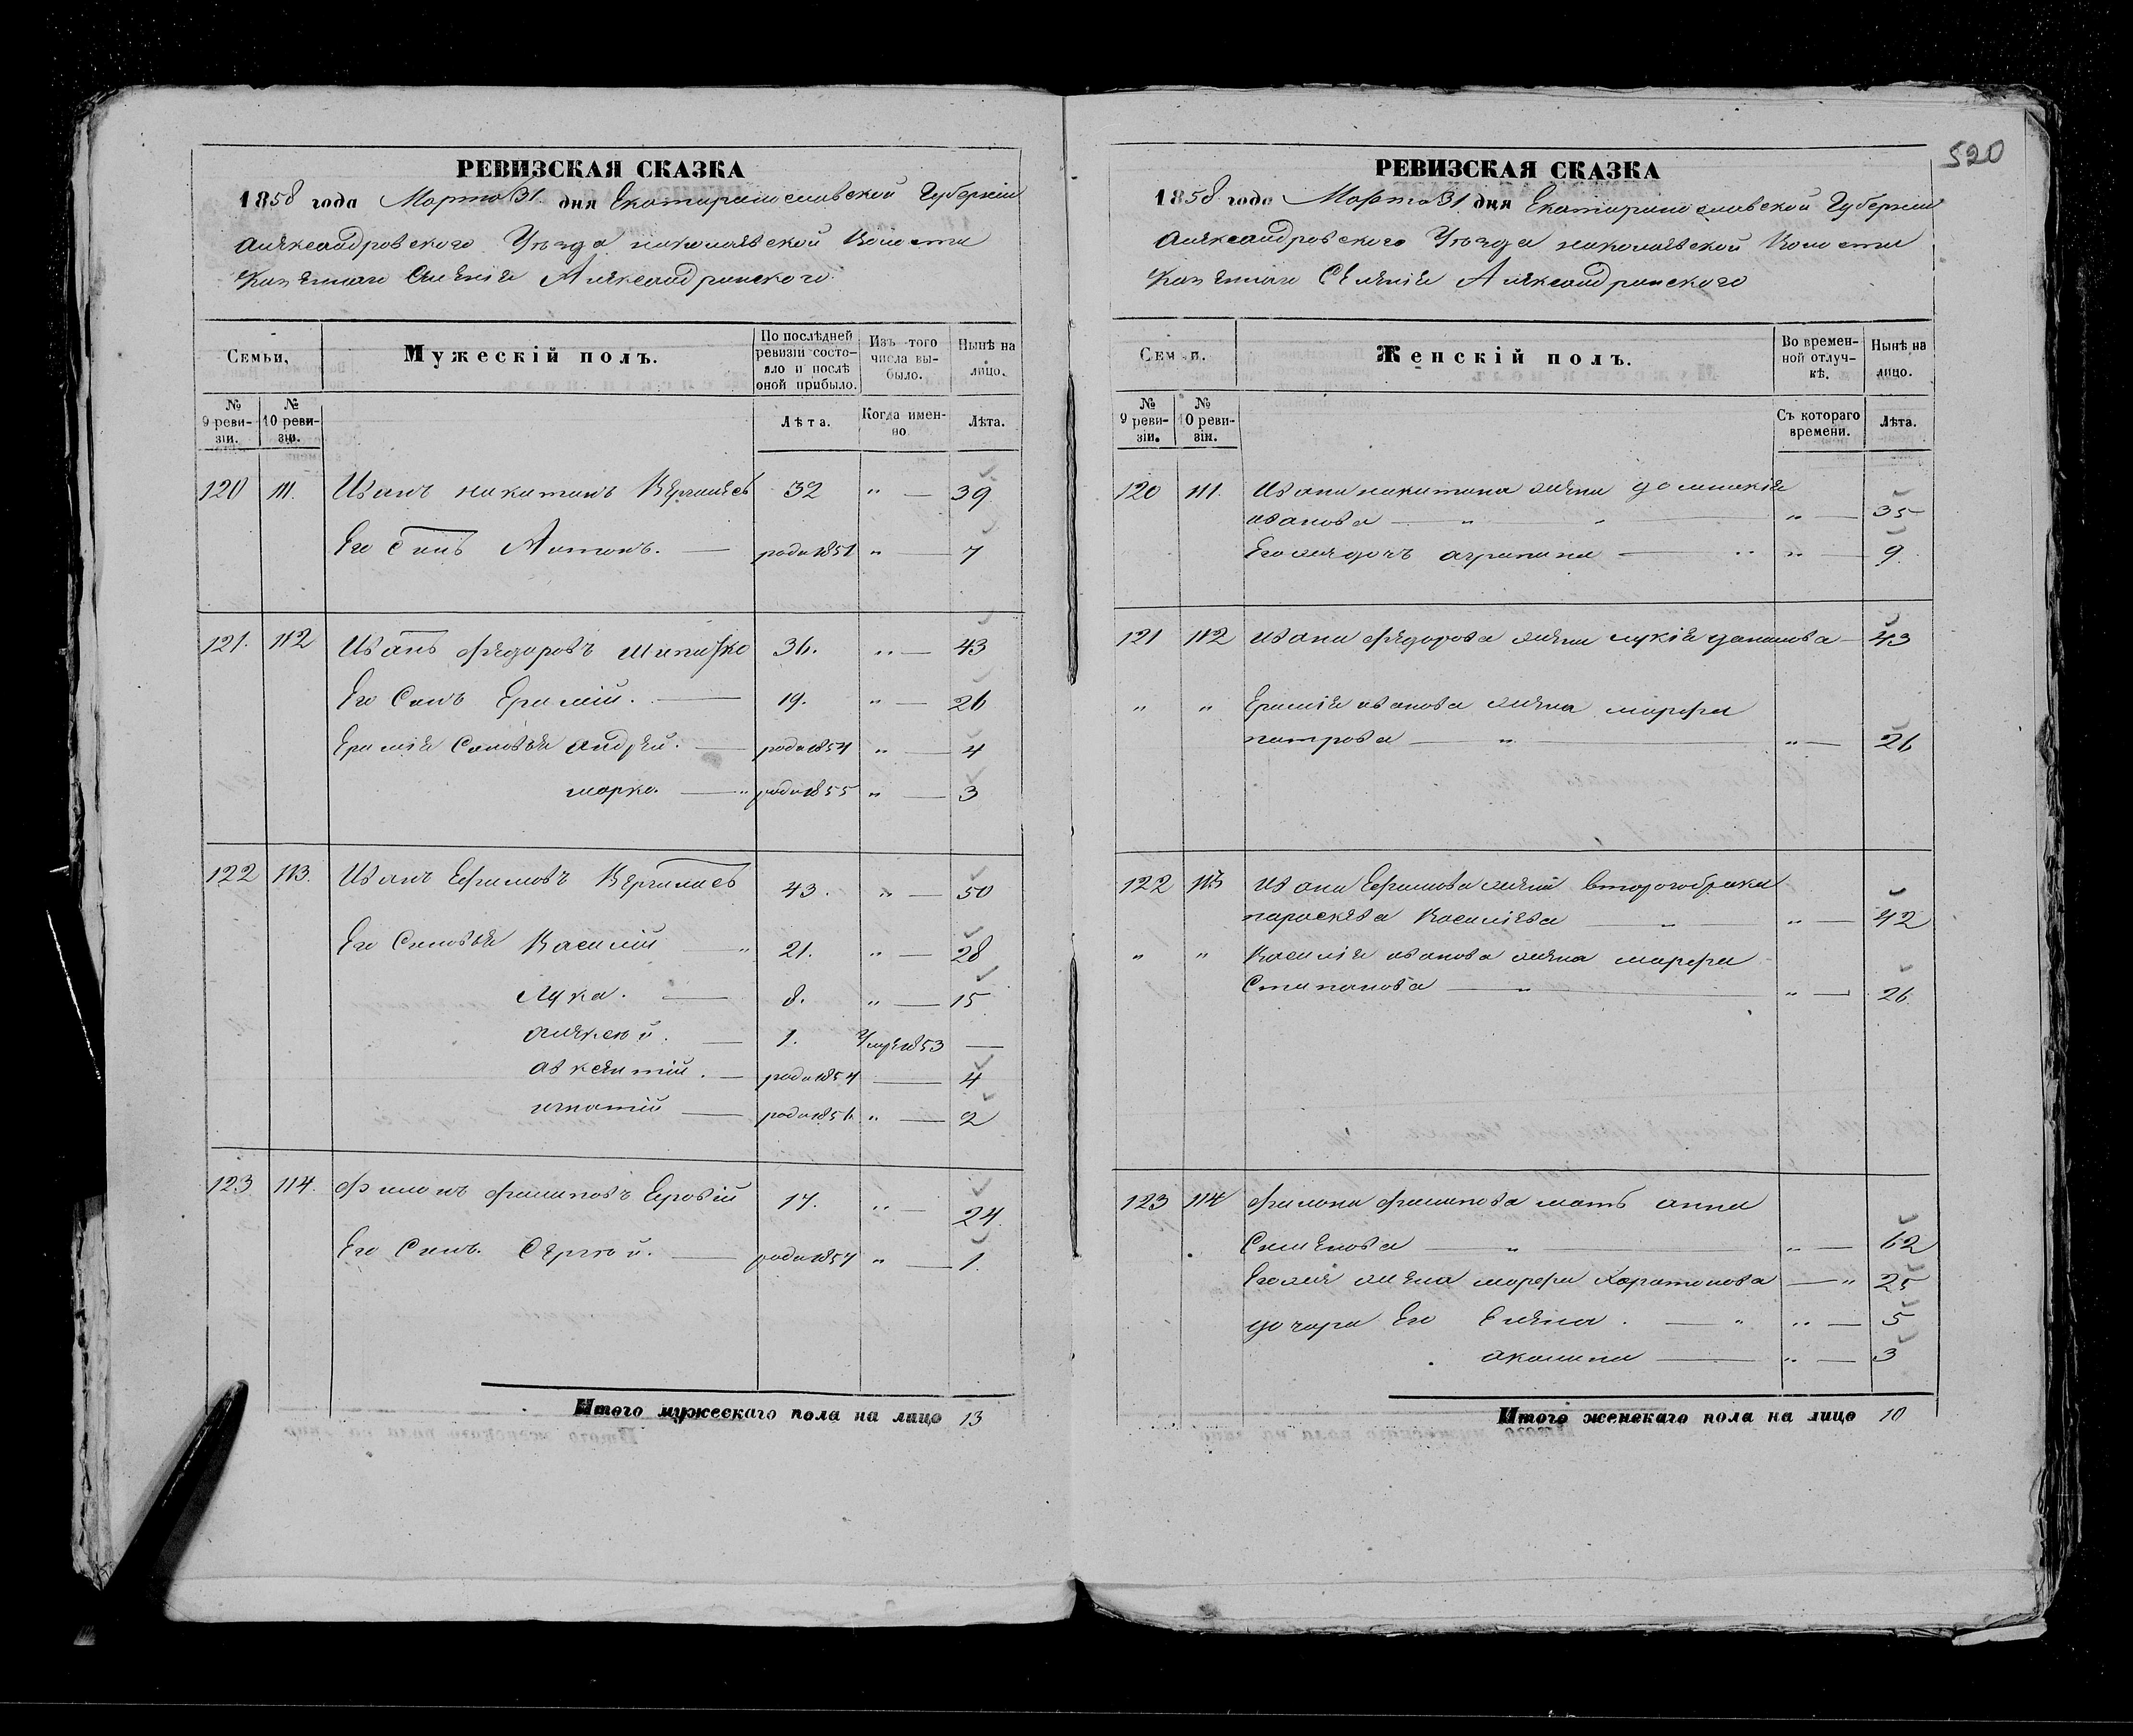 520
РЕВИЗСКАЯ СКАЗКА
1858 года Марта 31. дня Екатеринославской Губернии
Александровского Уѣзда николаевской Волости
Казенного Селенія Александринского
Семьи.
Мужескій полъ.
По послѣдней ревизіи состояло и послѣ оной прибыло.
Изъ того числа выбыло.
Нынѣ на лицо.
№ 9 ревизіи.
№ 10 ревизіи.
Лѣта.
Когда именно
Лѣта.
120 111. Иванъ никитинъ 32 " — 39
Его Синъ Антонъ. — роди 1851 " — 7
121. 112 Иванъ федоровъ 36. " — 43
Его Синъ Еримій. — 19. " — 26
Еримія Синовья андрей. — роди 1854 " — 4
марко. — " роди 1855 " — 3
122 113. Иванъ Ефимовъ 43. " — 50
Его Синовья Василій — " 21. " — 28
Лука. — 8. " — 15
алексѣй. — 1. Умре 1853 —
авксентий. — роди 1854 — 4
игнатий — роди 1856 " — 2
123 114. Филонъ филиповъ 17. " — 24.
Его Синъ. Сергѣй. — роди 1857 " — 1.
Итого мужескаго пола на лицо 13
РЕВИЗСКАЯ СКАЗКА
1858 года Марта 31 дня Екатеринославской Губернии
Александровского Уѣзда николаевской Волости
Казенного Селенія Александринского
Семьи.
Женскій полъ.
Во временной отлучкѣ.
Нынѣ на лицо.
№ 9 ревизіи.
№ 10 ревизіи.
Съ котораго времени.
Лѣта.
120 111. Ивана никитина жена домникія
иванова — " " " — 35
Его же дочъ агрипина — " " — 9.
121 112 ивана федорова жена лукія данилова — 43
" " Еримія иванова жена марфа
петрова — " — " — 26
122 113 ивана Ефимова жена второго брака
параскева Василіева — " — " — 42
" " Василія иванова жена марфа
Стипанова — " — " — 26
123 114 филона филипова мать анна
Сименова — " — " — 62
Его же жена марфа Харитонова — " 25
дочери Его Елена. — " " — 5
акилина — " — 3
Итого женскаго пола на лицо 10